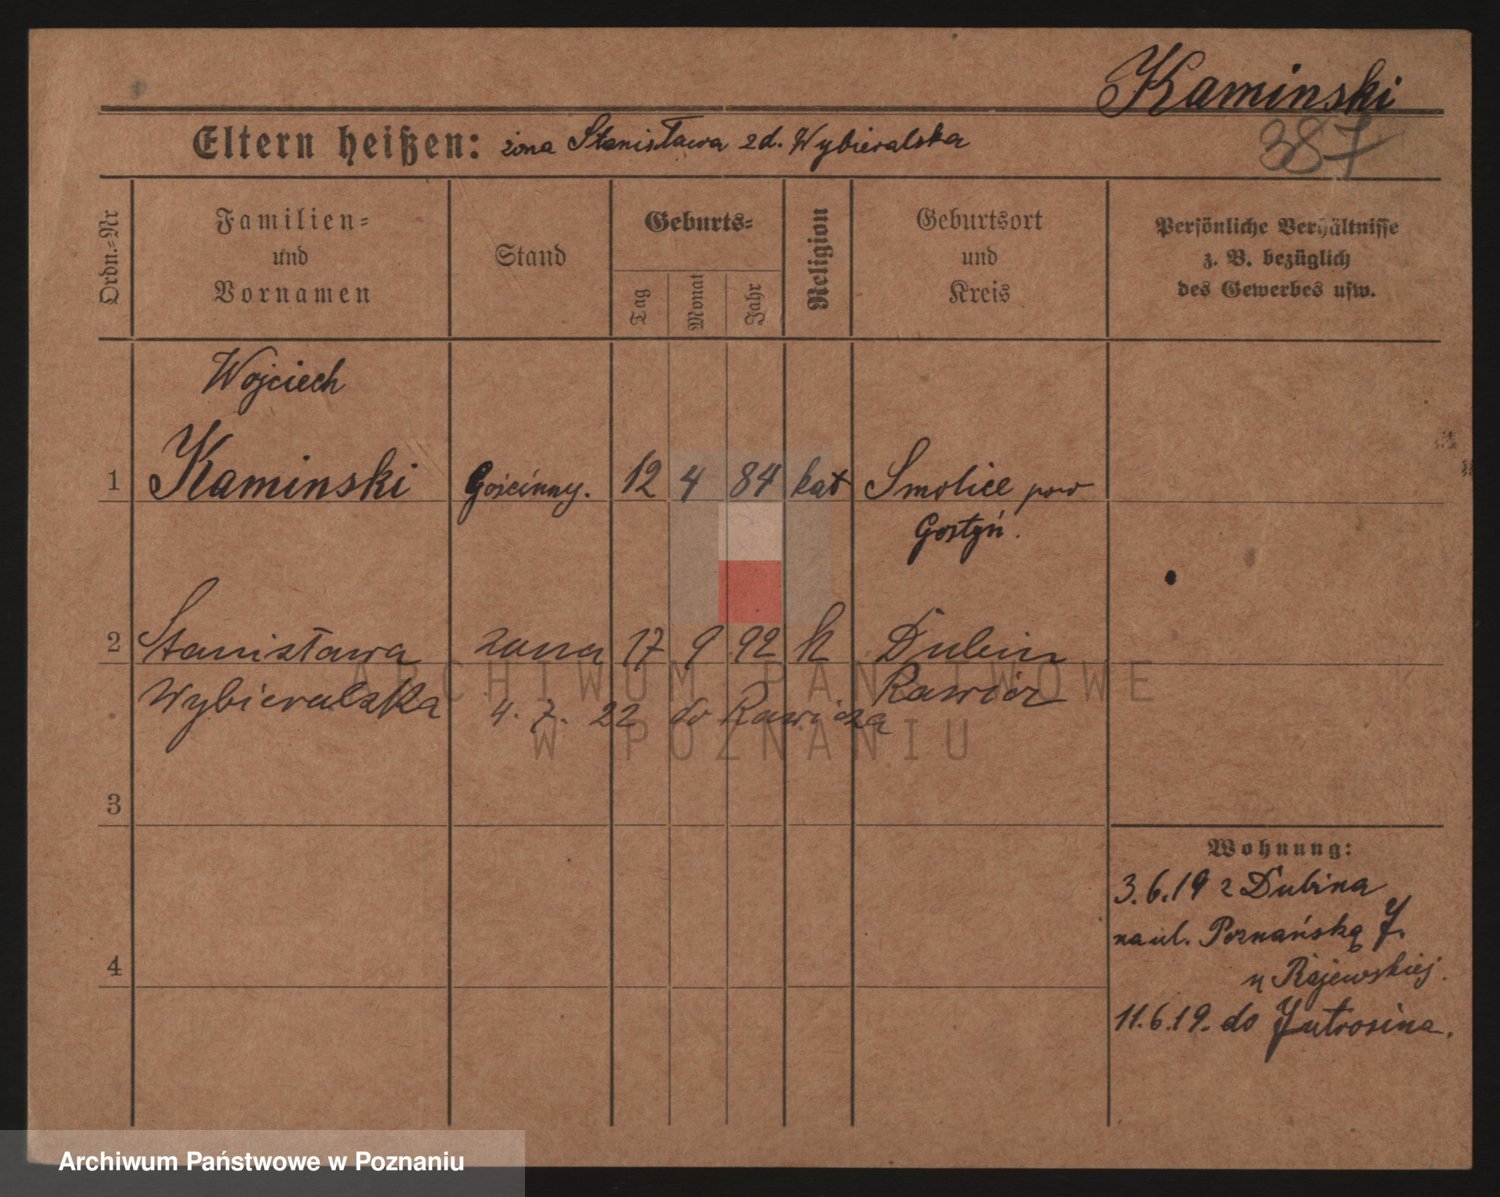 Kaminski
387
Eltern heißen: żona Stanisława zd. Wybieralska
Ordn.=Nr
Familien=
und
Vornamen
Stand
Geburts=
Tag
Monat
Jahr
Religion
Geburtsort
und
Kreis
Persönliche Verhältnisse
z. B. bezüglich
des Gewerbes usw.
Wojciech
1 Kaminski Gościnny. 12 4 84 kat Smolice pow
Gostyń.
2 Stanisława żona 17 9 92 k Dubin
Wybieralska Rawicz
4. 7. 22 do Rawicza
3
4
Wohnung:
3.6.19 z Dubina
na ul. Poznańską J.
u Rajewskiej.
11.6.19. do Jutrosina.
ARCHIWUM PAŃSTWOWE
W POZNANIU
Archiwum Państwowe w Poznaniu